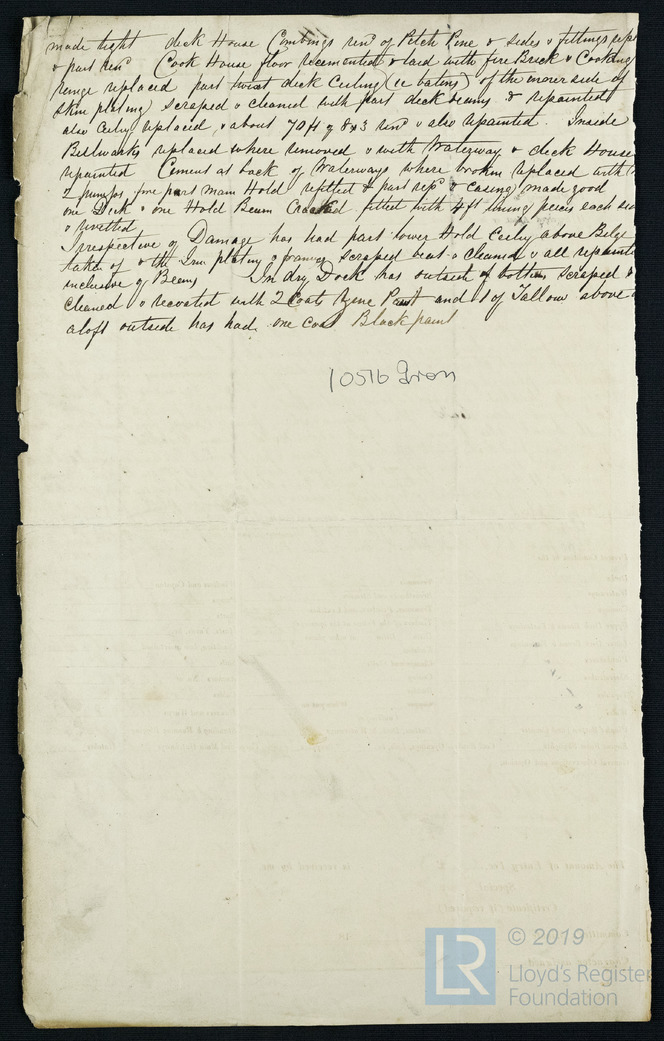 made tight deck House Combings ren^d of Pitch Pine & sides & fittings rep^d
& part ren^d Cook House floor recemented & laid with fire Brick & Cooking
range replaced part twixt deck Ceiling (ie batens) of the inner side of
skin plating scraped & cleaned with part deck beams & repainted
also Ceilg replaced & about 70 ft of 8x3 ren^d & also repainted. Inside
Bullwarks replaced where removed & with Waterway & deck House
repainted Cement at back of Waterways where broken replaced with
2 pumps fore part Main Hold refitted & part rep^d & casing made good
one Deck & one Hold Beam Cracked fitted with 4 ft lining pieces each side
& rivetted
Irrespective of Damage has had part lower Hold Ceilg above Bilge
taken of & the Iron plating & frames scraped beat & cleaned & all repainted
inclusive of Beams In dry Dock has outside of bottom scraped &
cleaned & recoated with 2 Coats Zinc Paint and 1 of Tallow above &
aloft outside has had one coat Black paint
10516 Iron
© 2019
LR
Lloyd's Register
Foundation